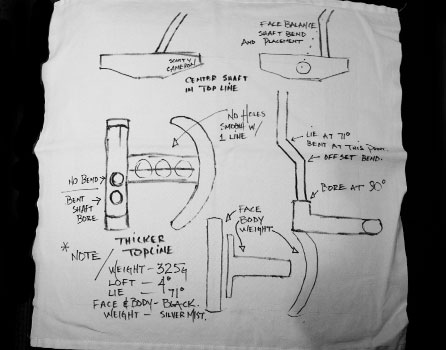 SCOTTY
CAMERON
FACE BALANCE
SHAFT BEND
AND PLACEMENT
CENTER SHAFT
IN TOP LINE
NO HOLES
SMOOTH W/
1 LINE
LIE AT 71°
BENT AT THIS POINT.
OFFSET BEND.
NO BEND
BENT
SHAFT
BORE.
BORE AT 80°
FACE
BODY
WEIGHT
* NOTE
THICKER
TOPLINE
WEIGHT - 325G
LOFT - 4°
LIE - 71°
FACE & BODY - BLACK.
WEIGHT - SILVER MIST.